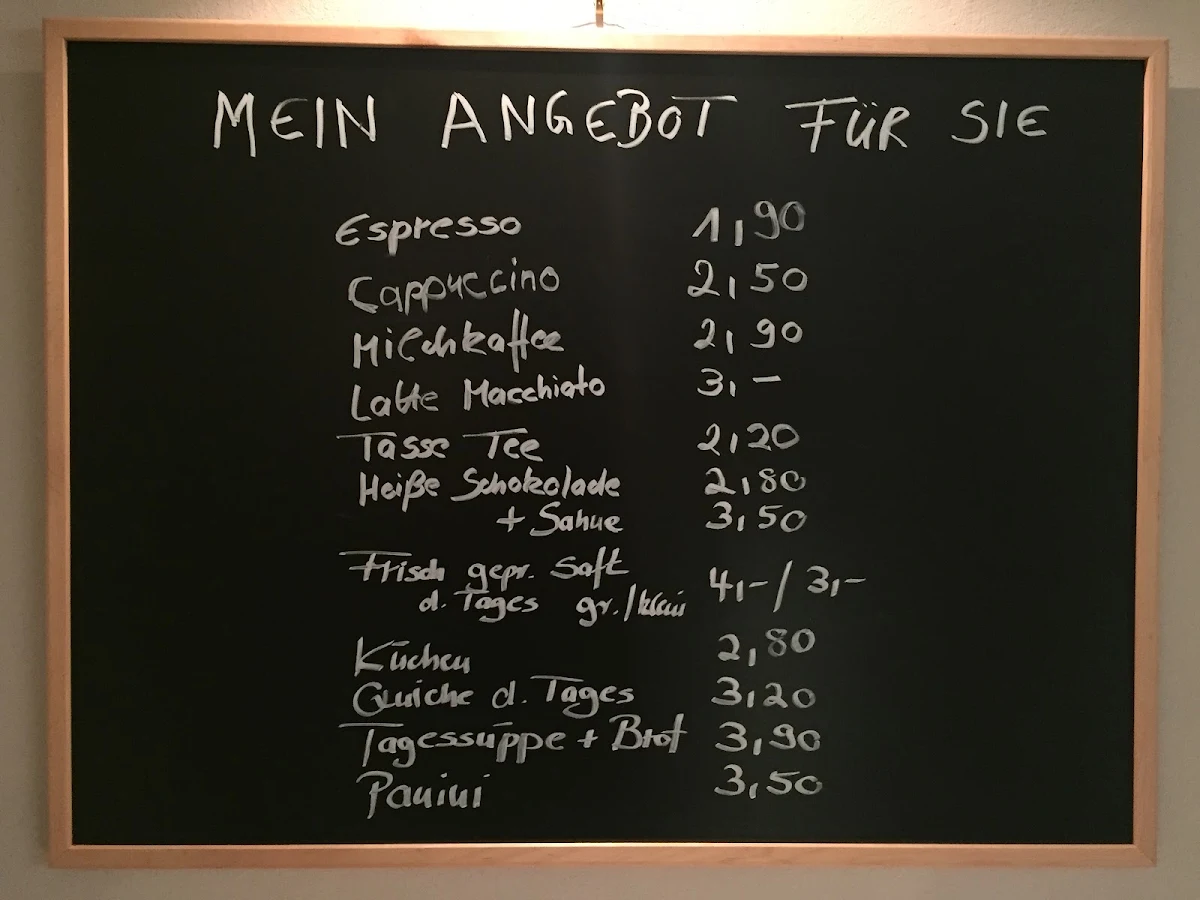 MEIN ANGEBOT FÜR SIE
Espresso 1,90
Cappuccino 2,50
Milchkaffee 2,90
Latte Macchiato 3,-
Tasse Tee 2,20
Heiße Schokolade 2,80
+ Sahne 3,50
Frisch gepr. Saft
d. Tages gr./klein 4,-/3,-
Kuchen 2,80
Quiche d. Tages 3,20
Tagessuppe + Brot 3,90
Panini 3,50